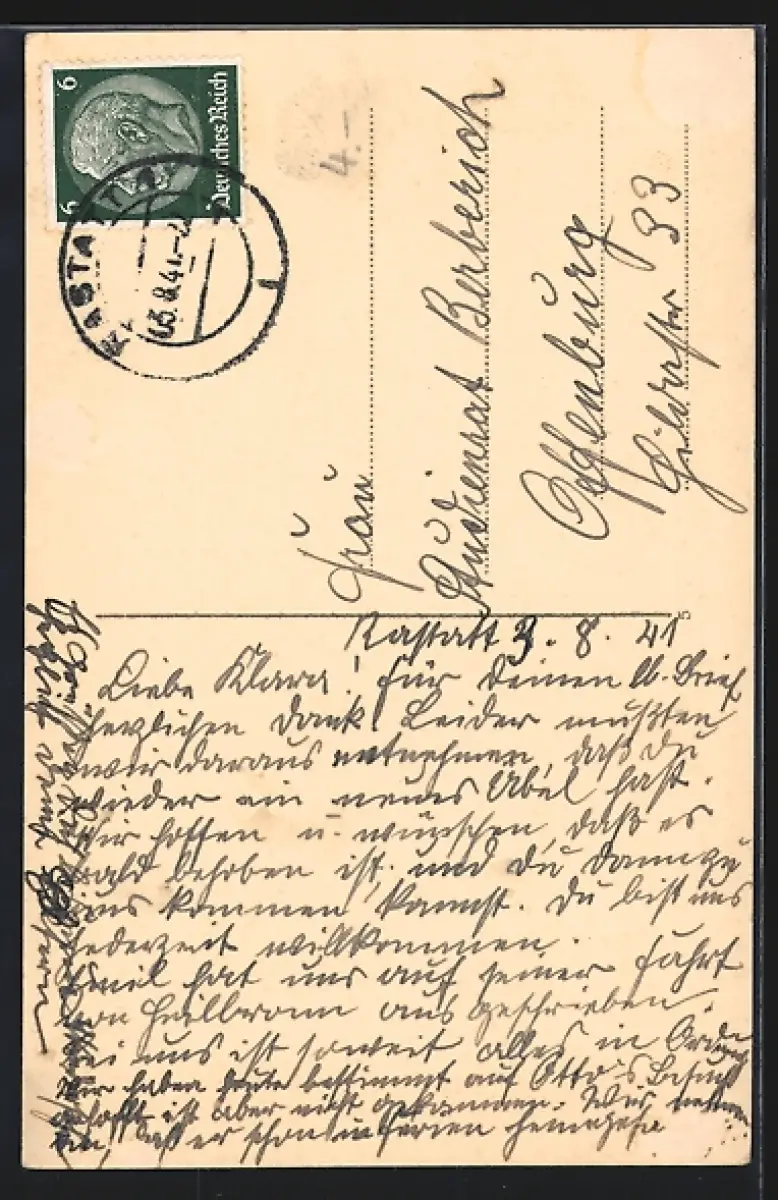 6 6
Deutsches Reich
RASTATT
03.8.41.
1
4.-
Frau
Studienrat Berberich
Offenburg
Hildastr 33
5
Rastatt 3. 8. 41
Liebe Klara! Für Deinen lb. Brief
herzlichen Dank! Leider mußten
wir daraus entnehmen, daß du
wieder ein neues Übel hast.
Wir hoffen u. wünschen, daß es
bald behoben ist und du dann zu
uns kommen kannst. Du bist uns
jederzeit willkommen.
Emil hat uns auf seiner Fahrt
von Heilbronn aus geschrieben.
Bei uns ist soweit alles in
Wir haben heute bestimmt auf Otto's Besuch
gehofft ist aber nicht gekommen. Wir
an, daß er schon in Ferien